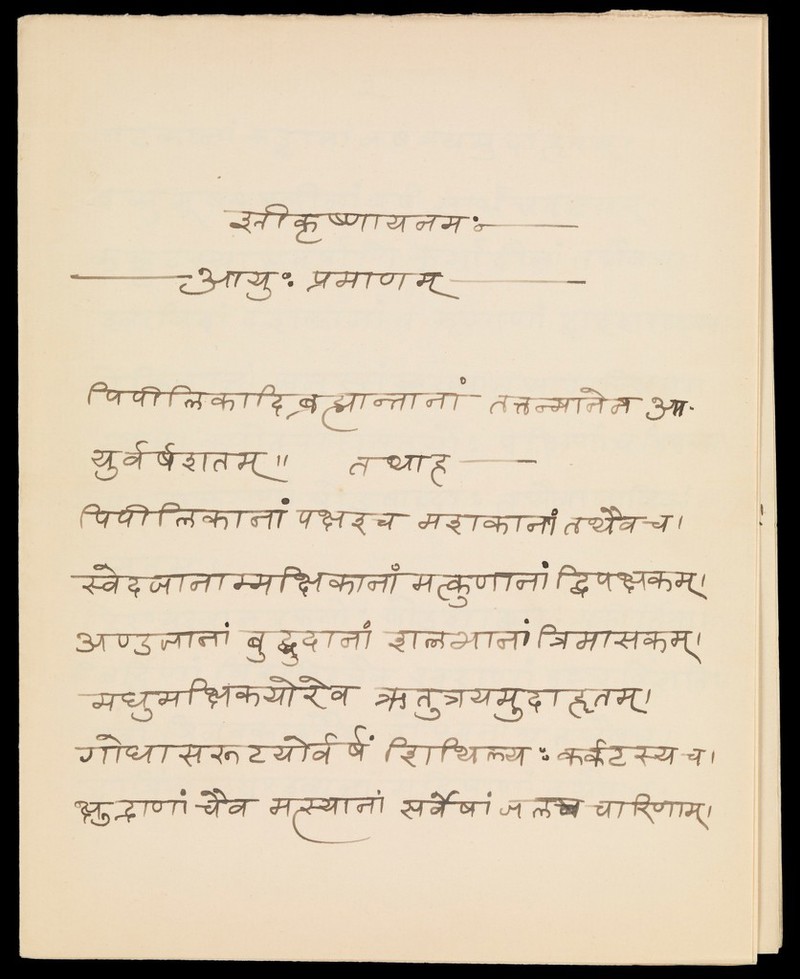 श्रीकृष्णायनमः
आयुः प्रमाणम्
पिपीलिकादिब्रह्मान्तानां तत्तन्मानेन आ-
युर्वर्षशतम्॥ तथाह
पिपीलिकानां पक्षश्च मशकानां तथैव च।
स्वेदजानाम्मक्षिकानां मत्कुणानां द्विपक्षकम्।
अण्डजानां बुद्बुदानां शलभानां त्रिमासकम्।
मधुमक्षिकयोरेव ऋतुत्रयमुदाहृतम्।
गोधासरटयोर्वर्षं शिथिल्यः कर्कटस्य च।
क्षुद्राणां चैव मत्स्यानां सर्वेषां जल चारिणाम्।